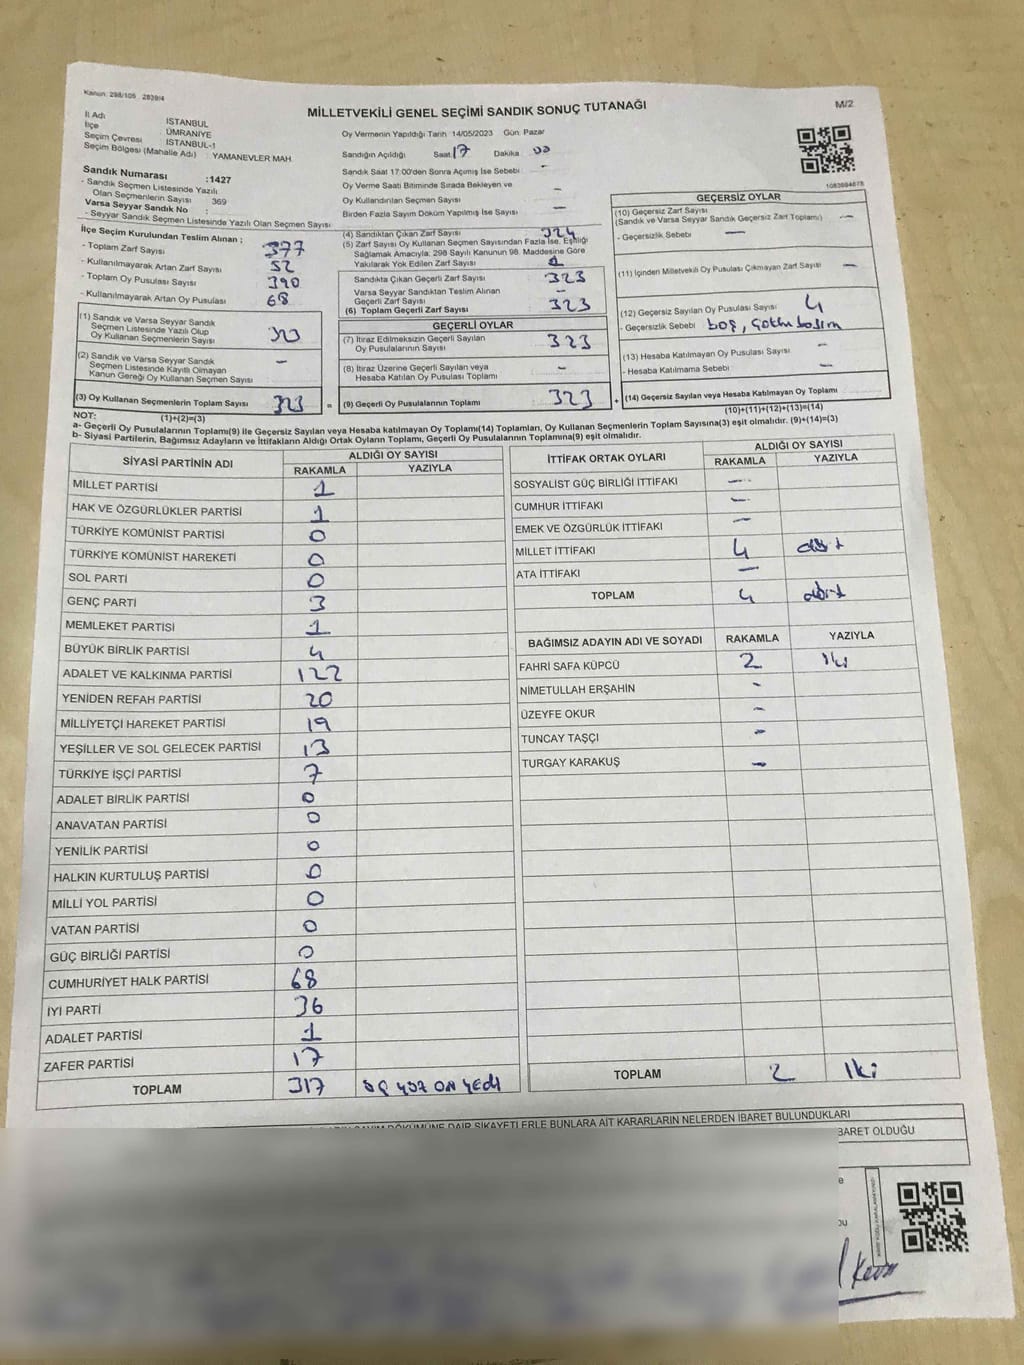 Kanun: 298/105 2839/4
MİLLETVEKİLİ GENEL SEÇİMİ SANDIK SONUÇ TUTANAĞI
M/2
İl Adı : İSTANBUL
İlçe : ÜMRANİYE
Seçim Çevresi : İSTANBUL-1
Seçim Bölgesi (Mahalle Adı) : YAMANEVLER MAH.
Sandık Numarası :1427
- Sandık Seçmen Listesinde Yazılı
Olan Seçmenlerin Sayısı 369
Varsa Seyyar Sandık No :
- Seyyar Sandık Seçmen Listesinde Yazılı Olan Seçmen Sayısı
Oy Vermenin Yapıldığı Tarih 14/05/2023 Gün: Pazar
Sandığın Açıldığı Saat 17 Dakika 00
Sandık Saat 17:00'den Sonra Açılmış İse Sebebi -
Oy Verme Saati Bitiminde Sırada Bekleyen ve
Oy Kullandırılan Seçmen Sayısı -
Birden Fazla Sayım Döküm Yapılmış İse Sayısı -
1083984878
İlçe Seçim Kurulundan Teslim Alınan ;
- Toplam Zarf Sayısı 377
- Kullanılmayarak Artan Zarf Sayısı 52
- Toplam Oy Pusulası Sayısı 390
- Kullanılmayarak Artan Oy Pusulası 68
(1) Sandık ve Varsa Seyyar Sandık
Seçmen Listesinde Yazılı Olup
Oy Kullanan Seçmenlerin Sayısı 323
(2) Sandık ve Varsa Seyyar Sandık
Seçmen Listesinde Kayıtlı Olmayan
Kanun Gereği Oy Kullanan Seçmen Sayısı -
(3) Oy Kullanan Seçmenlerin Toplam Sayısı 323
(1)+(2)=(3)
(4) Sandıktan Çıkan Zarf Sayısı 324
(5) Zarf Sayısı Oy Kullanan Seçmen Sayısından Fazla İse, Eşitliği
Sağlamak Amacıyla; 298 Sayılı Kanunun 98. Maddesine Göre
Yakılarak Yok Edilen Zarf Sayısı 1
Sandıkta Çıkan Geçerli Zarf Sayısı 323
Varsa Seyyar Sandıktan Teslim Alınan
Geçerli Zarf Sayısı -
(6) Toplam Geçerli Zarf Sayısı 323
GEÇERLİ OYLAR
(7) İtiraz Edilmeksizin Geçerli Sayılan
Oy Pusulalarının Sayısı 323
(8) İtiraz Üzerine Geçerli Sayılan veya
Hesaba Katılan Oy Pusulası Toplamı -
= (9) Geçerli Oy Pusulalarının Toplamı 323 +
GEÇERSİZ OYLAR
(10) Geçersiz Zarf Sayısı
(Sandık ve Varsa Seyyar Sandık Geçersiz Zarf Toplamı) -
- Geçersizlik Sebebi -
(11) İçinden Milletvekili Oy Pusulası Çıkmayan Zarf Sayısı -
(12) Geçersiz Sayılan Oy Pusulası Sayısı 4
- Geçersizlik Sebebi boş,
(13) Hesaba Katılmayan Oy Pusulası Sayısı -
- Hesaba Katılmama Sebebi -
(14) Geçersiz Sayılan veya Hesaba Katılmayan Oy Toplamı
(10)+(11)+(12)+(13)=(14)
NOT:
a- Geçerli Oy Pusulalarının Toplamı(9) ile Geçersiz Sayılan veya Hesaba katılmayan Oy Toplamı(14) Toplamları, Oy Kullanan Seçmenlerin Toplam Sayısına(3) eşit olmalıdır. (9)+(14)=(3)
b- Siyasi Partilerin, Bağımsız Adayların ve İttifakların Aldığı Ortak Oyların Toplamı, Geçerli Oy Pusulalarının Toplamına(9) eşit olmalıdır.
SİYASİ PARTİNİN ADI ALDIĞI OY SAYISI
RAKAMLA YAZIYLA
MİLLET PARTİSİ 1
HAK VE ÖZGÜRLÜKLER PARTİSİ 1
TÜRKİYE KOMÜNİST PARTİSİ 0
TÜRKİYE KOMÜNİST HAREKETİ 0
SOL PARTİ 0
GENÇ PARTİ 3
MEMLEKET PARTİSİ 1
BÜYÜK BİRLİK PARTİSİ 4
ADALET VE KALKINMA PARTİSİ 122
YENİDEN REFAH PARTİSİ 20
MİLLİYETÇİ HAREKET PARTİSİ 19
YEŞİLLER VE SOL GELECEK PARTİSİ 13
TÜRKİYE İŞÇİ PARTİSİ 7
ADALET BİRLİK PARTİSİ 0
ANAVATAN PARTİSİ 0
YENİLİK PARTİSİ 0
HALKIN KURTULUŞ PARTİSİ 0
MİLLİ YOL PARTİSİ 0
VATAN PARTİSİ 0
GÜÇ BİRLİĞİ PARTİSİ 0
CUMHURİYET HALK PARTİSİ 68
İYİ PARTİ 36
ADALET PARTİSİ 1
ZAFER PARTİSİ 17
TOPLAM 317 üç yüz on yedi
İTTİFAK ORTAK OYLARI ALDIĞI OY SAYISI
RAKAMLA YAZIYLA
SOSYALİST GÜÇ BİRLİĞİ İTTİFAKI -
CUMHUR İTTİFAKI -
EMEK VE ÖZGÜRLÜK İTTİFAKI -
MİLLET İTTİFAKI 4 dört
ATA İTTİFAKI -
TOPLAM 4 dört
BAĞIMSIZ ADAYIN ADI VE SOYADI RAKAMLA YAZIYLA
FAHRİ SAFA KÜPCÜ 2 iki
NİMETULLAH ERŞAHİN -
ÜZEYFE OKUR -
TUNCAY TAŞÇI -
TURGAY KARAKUŞ -
TOPLAM 2 iki
DÖKÜMÜNE DAİR ŞİKAYETLERLE BUNLARA AİT KARARLARIN NELERDEN İBARET BULUNDUKLARI
İBARET OLDUĞU